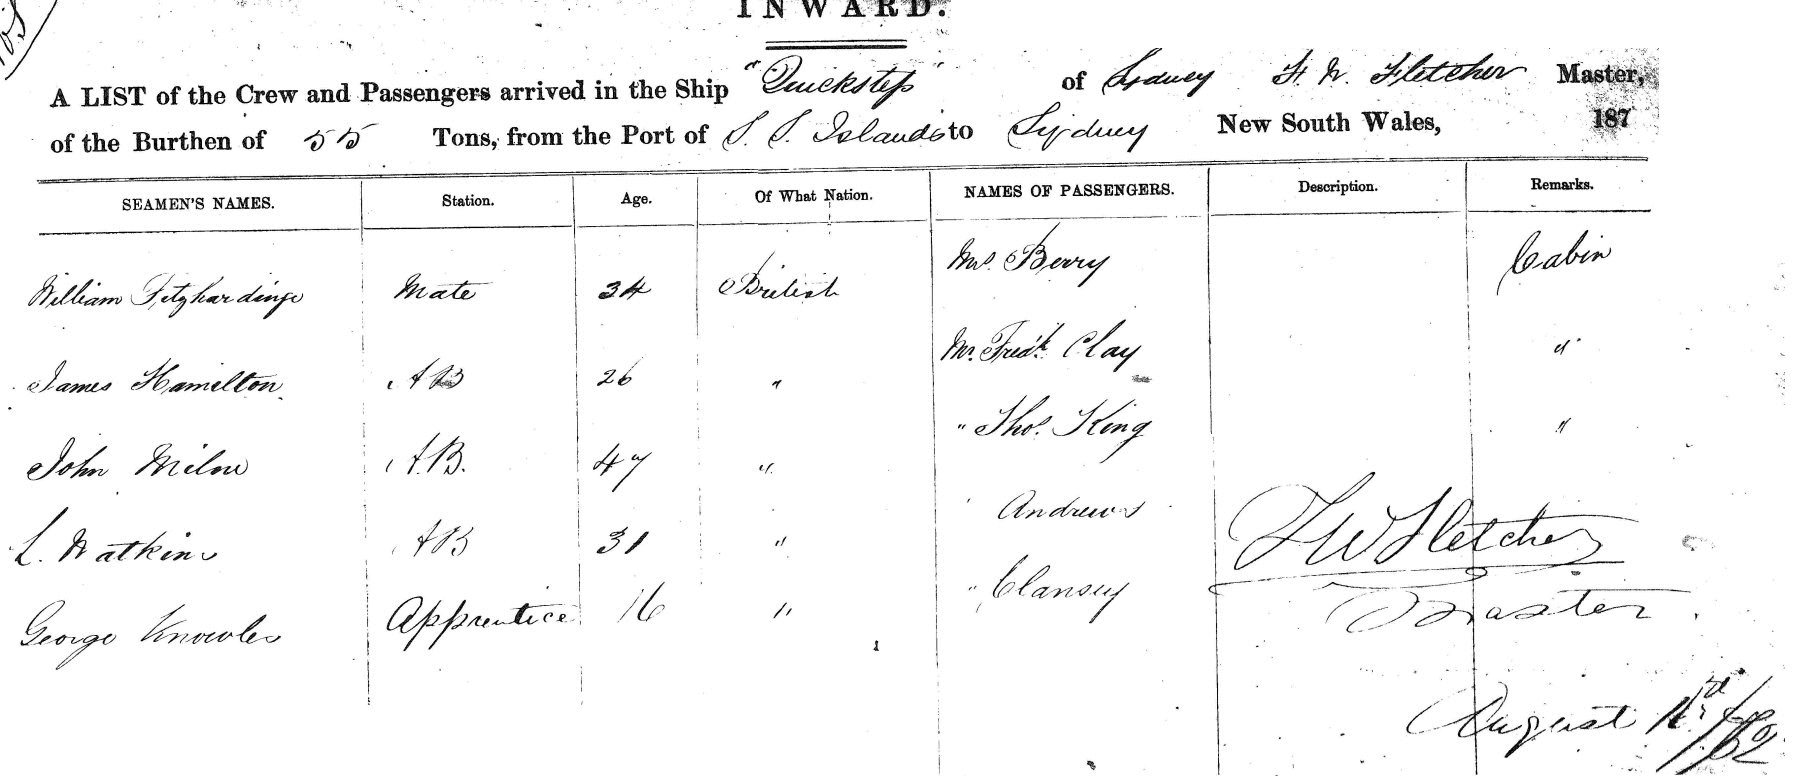 INWARD.
A LIST of the Crew and Passengers arrived in the Ship "Quickstep" of Sydney F W Fletcher Master,
of the Burthen of 55 Tons, from the Port of S. S. Islands to Sydney New South Wales, 187
SEAMEN'S NAMES. Station. Age. Of What Nation. NAMES OF PASSENGERS. Description. Remarks.
Mrs. Berry Cabin
William Fitzhardinge Mate 34 British
Mr. Fredk. Clay "
James Hamilton A B 26 "
" Thos. King "
John Milne A.B. 47 "
Andrews
L. Watkins AB 31 "
F W Fletcher
" Clansey
Master
George Knowles Apprentice 16 "
August